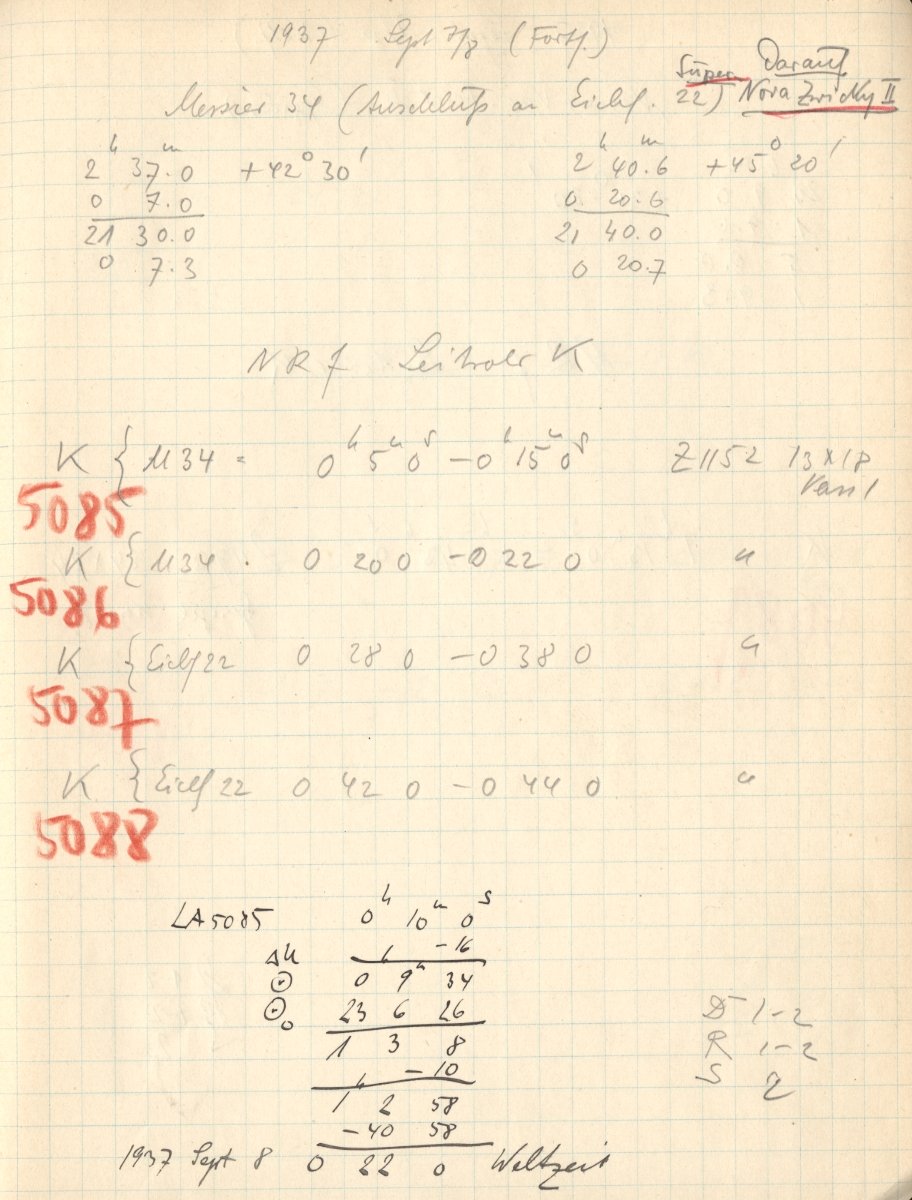 1937 Sept 7/8 (Forts.)
Super Darauf
Messier 34 (Anschluß an Eichf. 22) Nova Zwicky II
2h 37m.0 +42° 30' 2h 40m.6 +45° 20'
0 7.0 0 20.6
21 30.0 21 40.0
0 7.3 0 20.7
NR 7 Leitrohr K
K { M34 = 0h 5m 0s – 0h 15m 0s Z1152 13x18
5085
K { M34 . 0 20 0 – 0 22 0 "
5086
K { Eichf 22 0 28 0 – 0 38 0 "
5087
K { Eichf 22 0 42 0 – 0 44 0 "
5088
LA 5085 0h 10m 0s
Δu – 16
⊙ 0 9m 34
⊙o 23 6 26
1 3 8
– 10
1h 2 58
– 40 58
1937 Sept 8 0 22 0 Weltzeit
D 1–2
R 1–2
S 2